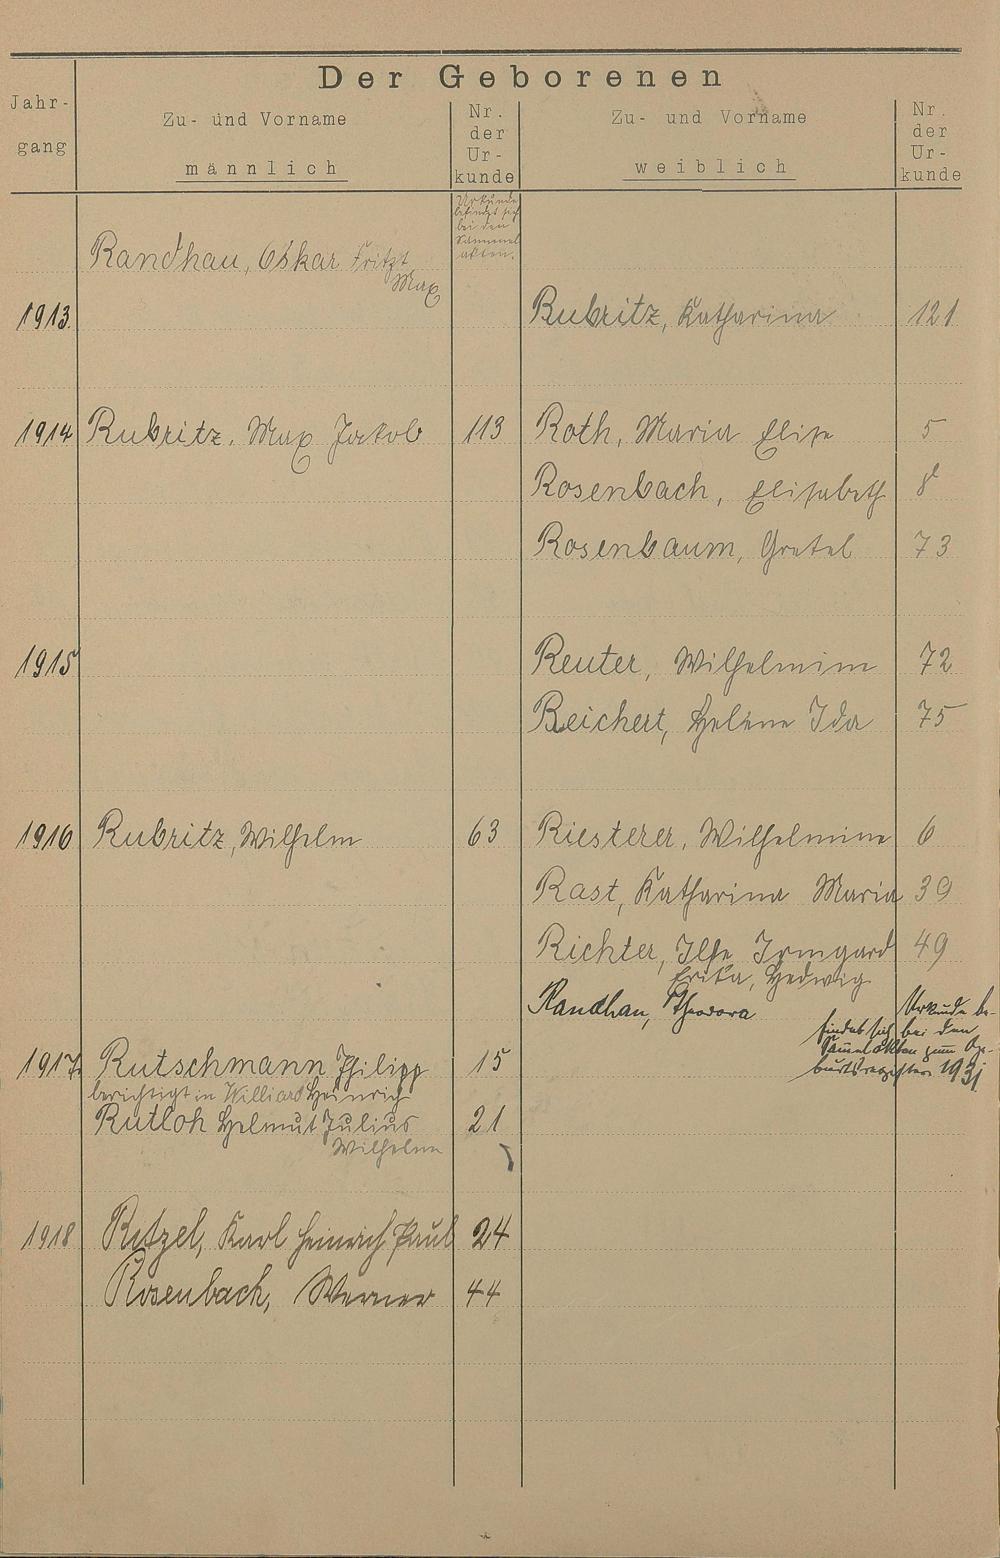 Der Geborenen
Jahr-
gang
Zu- und Vorname
männlich
Nr.
der
Ur-
kunde
Zu- und Vorname
weiblich
Nr.
der
Ur-
kunde
Urkunde
befindet sich
bei den
Sammel
akten.
Randhau, Oskar Fritz
Max
1913 Rubritz, Katharina 121
1914 Rubritz, Max Jakob 113 Roth, Maria Elise 5
Rosenbach, Elisabeth 8
Rosenbaum, Gretel 73
1915 Reuter, Wilhelmine 72
Reichert, Helene Ida 75
1916 Rubritz, Wilhelm 63 Riesterer, Wilhelmine 6
Rast, Katharina Maria 39
Richter, Ilse Irmgard 49
Erika, Hedwig
Randhau, Theodora Urkunde be-
findet sich bei den
Sammelakten zum Ge-
burtsregister 1931
1917 Rutschmann Philipp 15
berichtigt in Williard Heinrich
Rutloh Helmut Julius 21
Wilhelm
1918 Retzel, Karl Heinrich Paul 24
Rosenbach, Werner 44